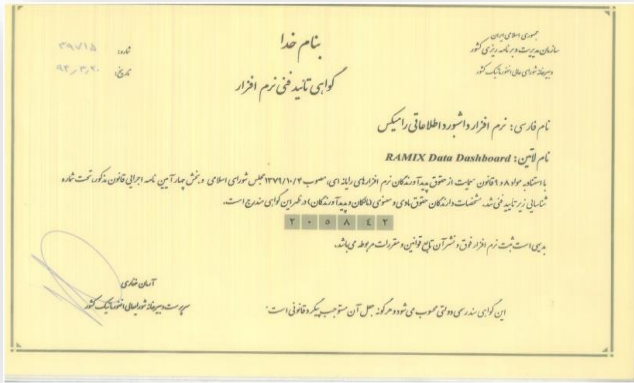 جمهوری اسلامی ایران
سازمان مدیریت و برنامه ریزی کشور
دبیرخانه شورای عالی انفورماتیک کشور
بنام خدا
گواهی تائید فنی نرم افزار
شماره:
تاریخ:
نام فارسی: نرم افزار داشبورد اطلاعاتی رامیکس
نام لاتین: RAMIX Data Dashboard
با استناد به مواد ۸ و ۹ قانون حمایت از حقوق پدیدآورندگان نرم افزارهای رایانه ای، مصوب ۱۳۷۹/۱۰/۴ مجلس شورای اسلامی و بخش چهار آیین نامه اجرایی قانون مذکور، تحت شماره
شناسایی زیر تایید فنی شد. مشخصات دارندگان حقوق مادی و معنوی (مالکان و پدیدآورندگان) در ظهر این گواهی مندرج است.
۲۰۵۸۴۲
بدیهی است ثبت نرم افزار فوق و نشر آن تابع قوانین و مقررات مربوطه می باشد.
سرپرست دبیرخانه شورایعالی انفورماتیک کشور
این گواهی سند رسمی دولتی محسوب می شود و هرگونه جعل آن مستوجب پیگرد قانونی است.